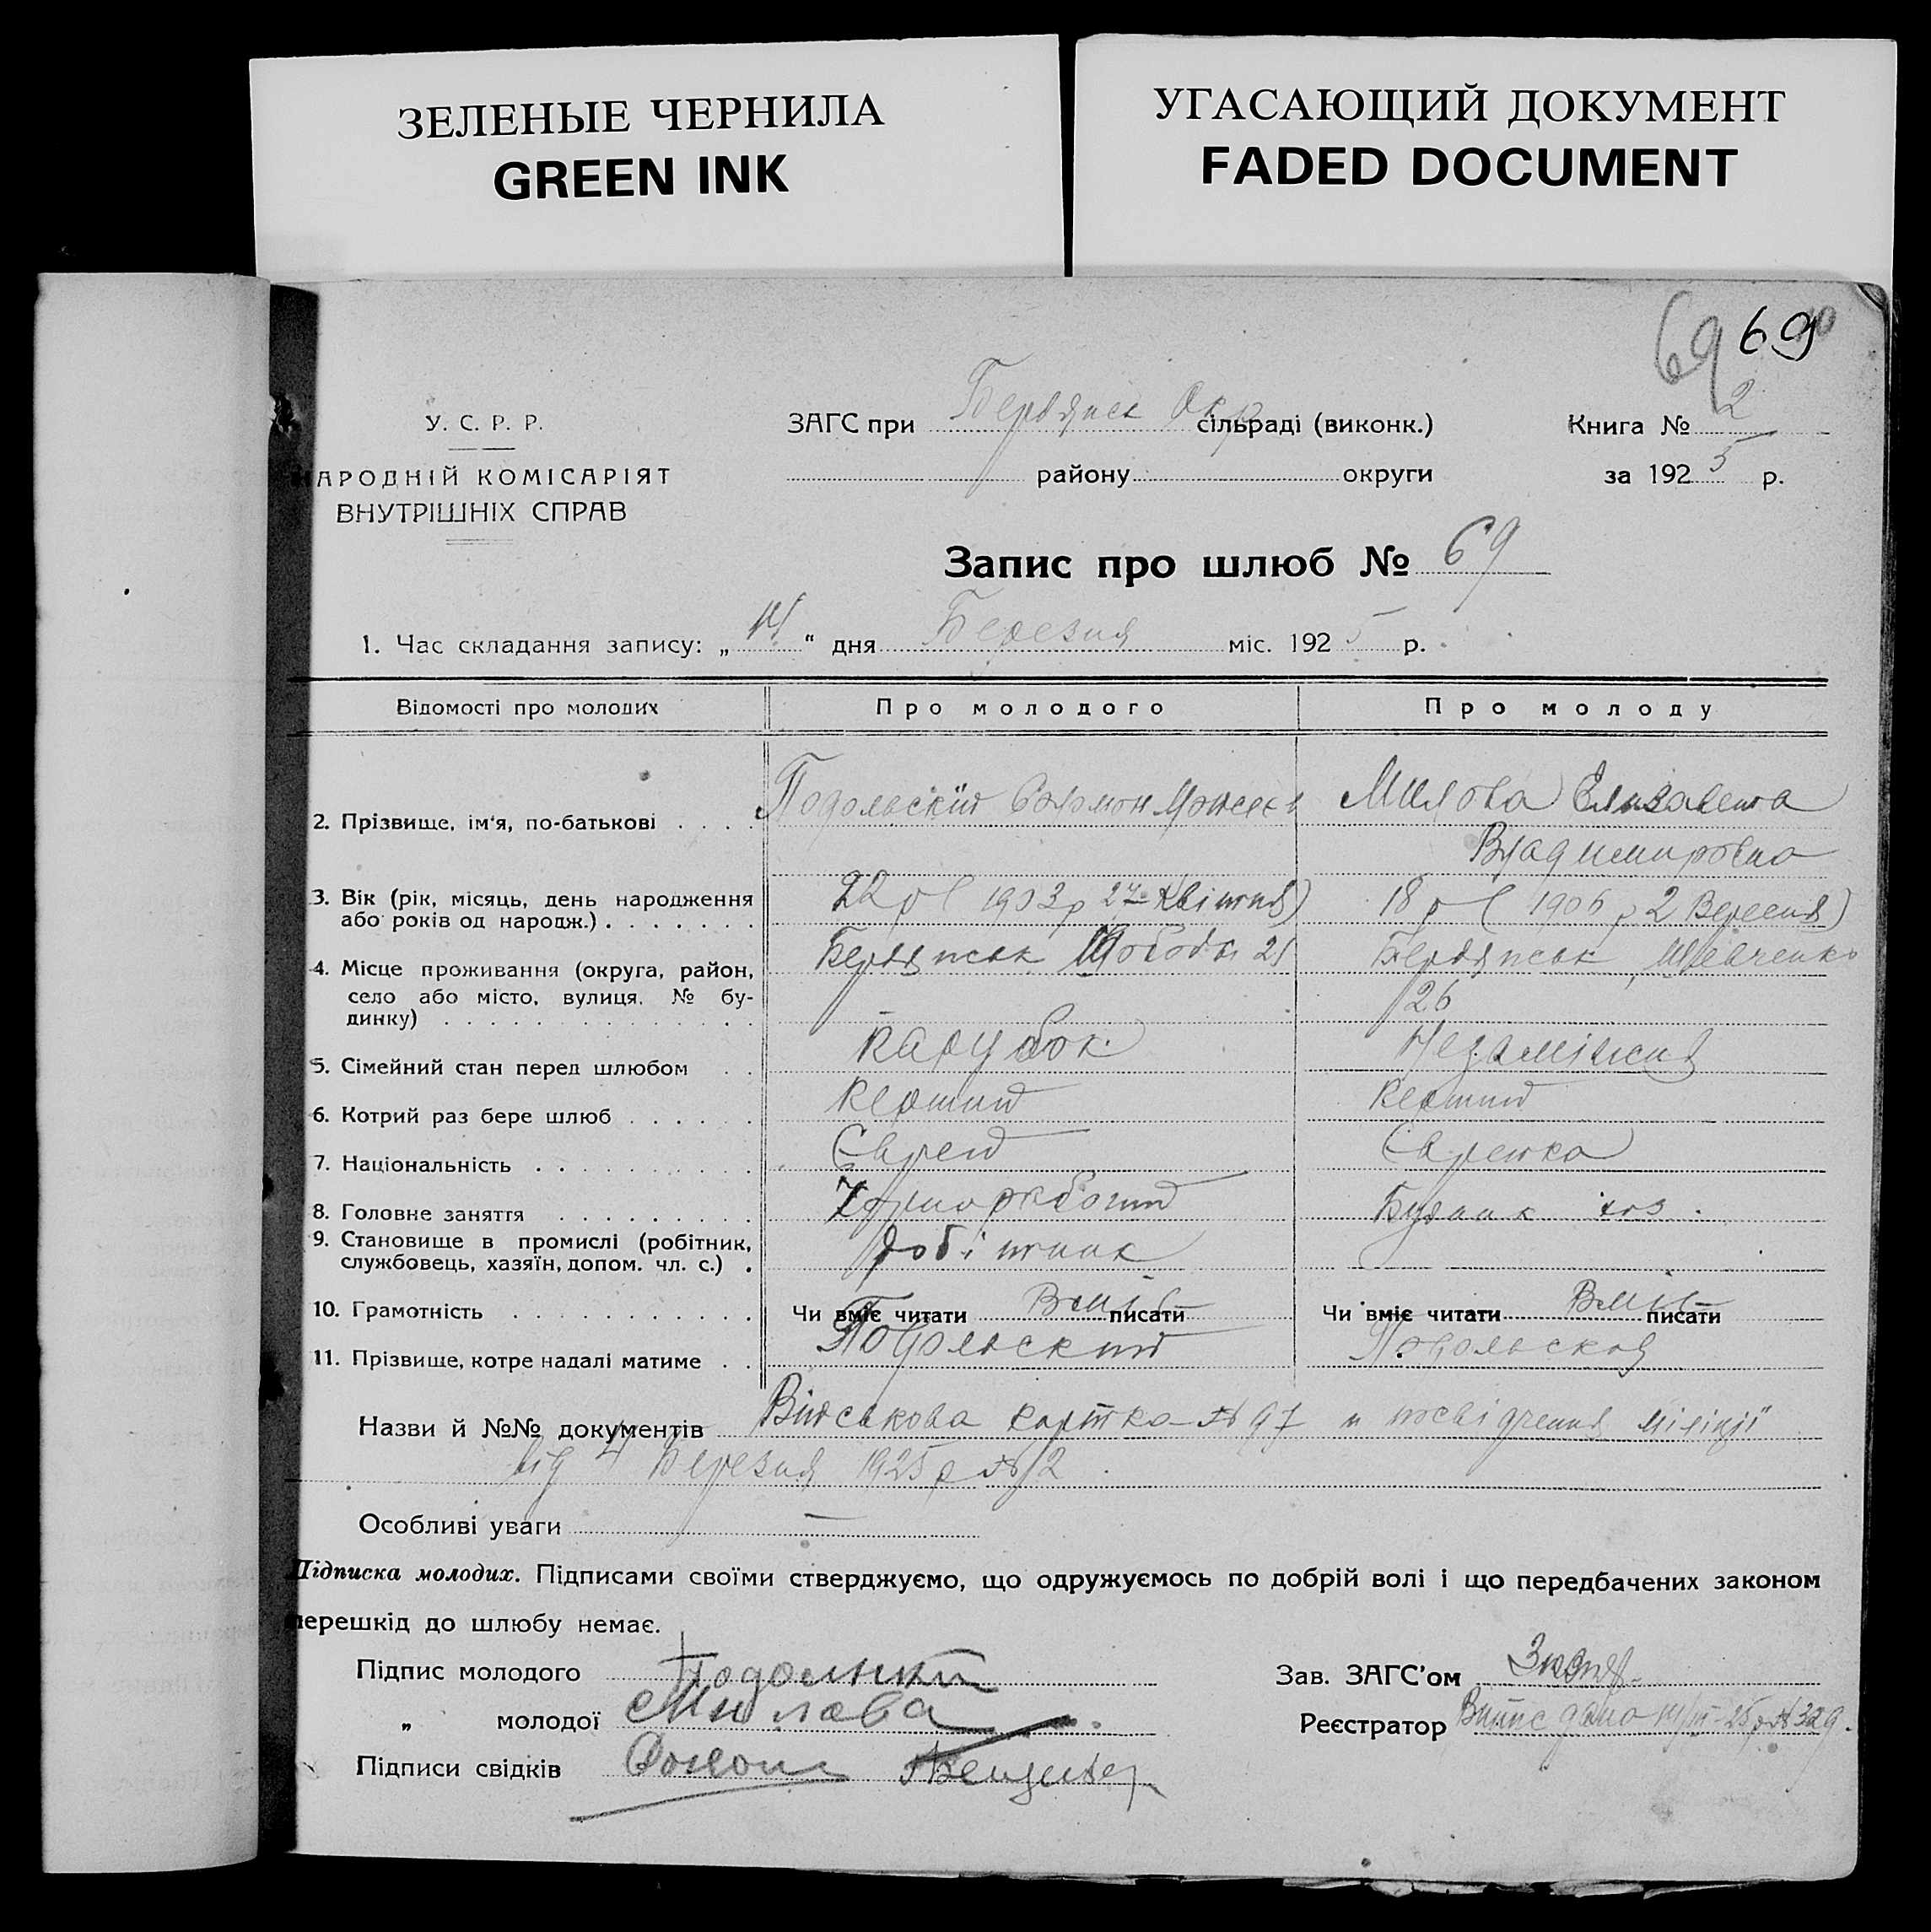 ЗЕЛЕНЫЕ ЧЕРНИЛА
GREEN INK
УГАСАЮЩИЙ ДОКУМЕНТ
FADED DOCUMENT
69 69
У. С. Р. Р.
НАРОДНІЙ КОМІСАРІЯТ
ВНУТРІШНІХ СПРАВ
ЗАГС при Бердянск Окр сільраді (виконк.)
району округи
Книга № 2
за 1925 р.
Запис про шлюб № 69
1. Час складання запису: „ 14 “ дня Березня міс. 1925 р.
Відомості про молодих Про молодого Про молоду
2. Прізвище, ім'я, по-батькові Подольскій Соломон Моисеев Милова Елизавета
Владимировна
3. Вік (рік, місяць, день народження
або років од народж.) 22 р ( 1903 р 27 Квітня) 18 р ( 1906 р 2 Вересня)
4. Місце проживання (округа, район,
село або місто, вулиця, № бу-
динку) Бердянськ Свободи 21 Бердянськ, Шевченко
26
5. Сімейний стан перед шлюбом парубок Незаміжня
6. Котрий раз бере шлюб перший перший
7. Національність Єврей Єврейка
8. Головне заняття Чорноробочий Будинк хоз.
9. Становище в промислі (робітник,
службовець, хазяїн, допом. чл. с.) робітник
10. Грамотність Чи вміє читати Вміє писати Чи вміє читати Вміє писати
11. Прізвище, котре надалі матиме Подольский Подольская
Назви й №№ документів Військова картка № 97 и посвідчення міліції
від 4 Березня 1925 р № 12.
Особливі уваги —
Підписка молодих. Підписами своїми стверджуємо, що одружуємось по добрій волі і що передбачених законом
перешкід до шлюбу немає.
Підпис молодого Подольский
„ молодої Милова
Підписи свідків
Зав. ЗАГС'ом
Реєстратор Випис дано 14/III-25 р № 329.